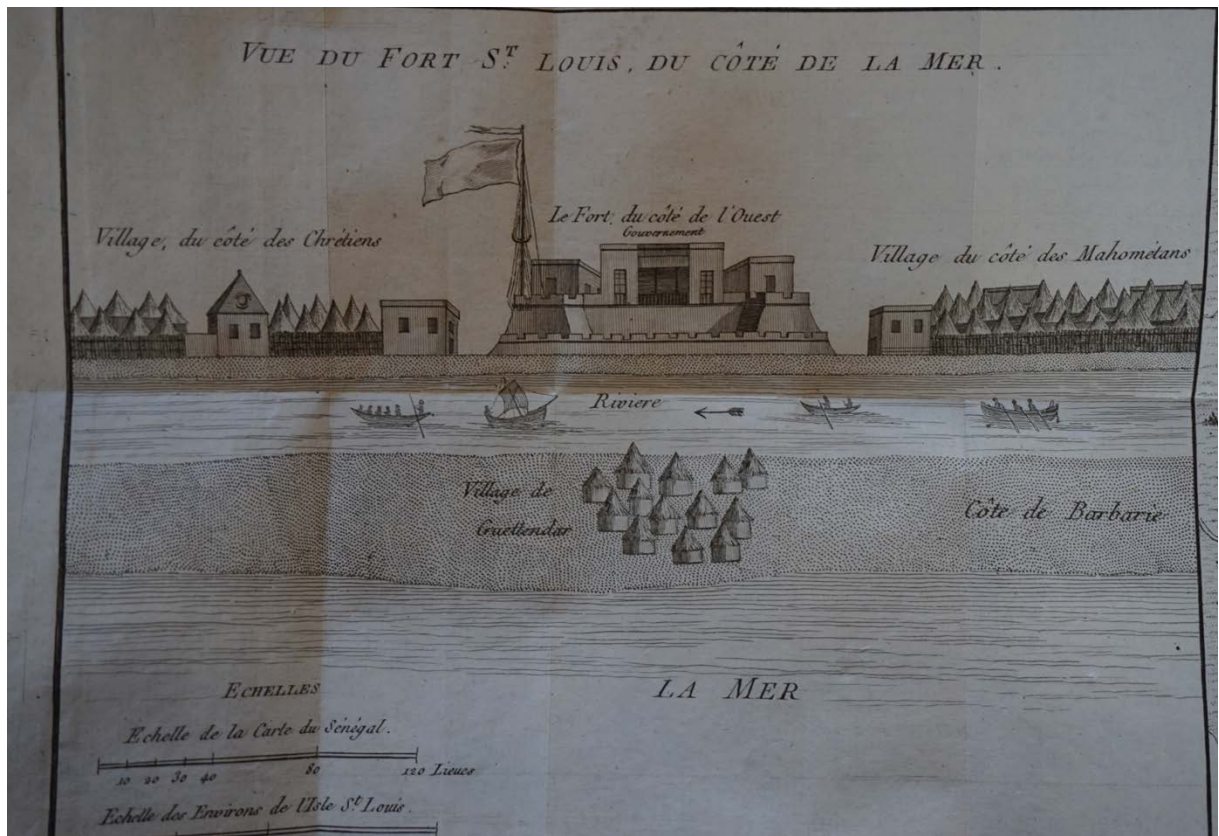 VUE DU FORT S.T LOUIS, DU CÔTÉ DE LA MER.
Le Fort, du côté de l'Ouest
Gouvernement
Village, du côté des Chrétiens
Village du côté des Mahométans
Riviere
Village de
Guettendar
Côte de Barbarie
LA MER
ECHELLES
Echelle de la Carte du Sénégal.
10 20 30 40 80 120 Lieues
Echelle des Environs de l'Isle S.t Louis.